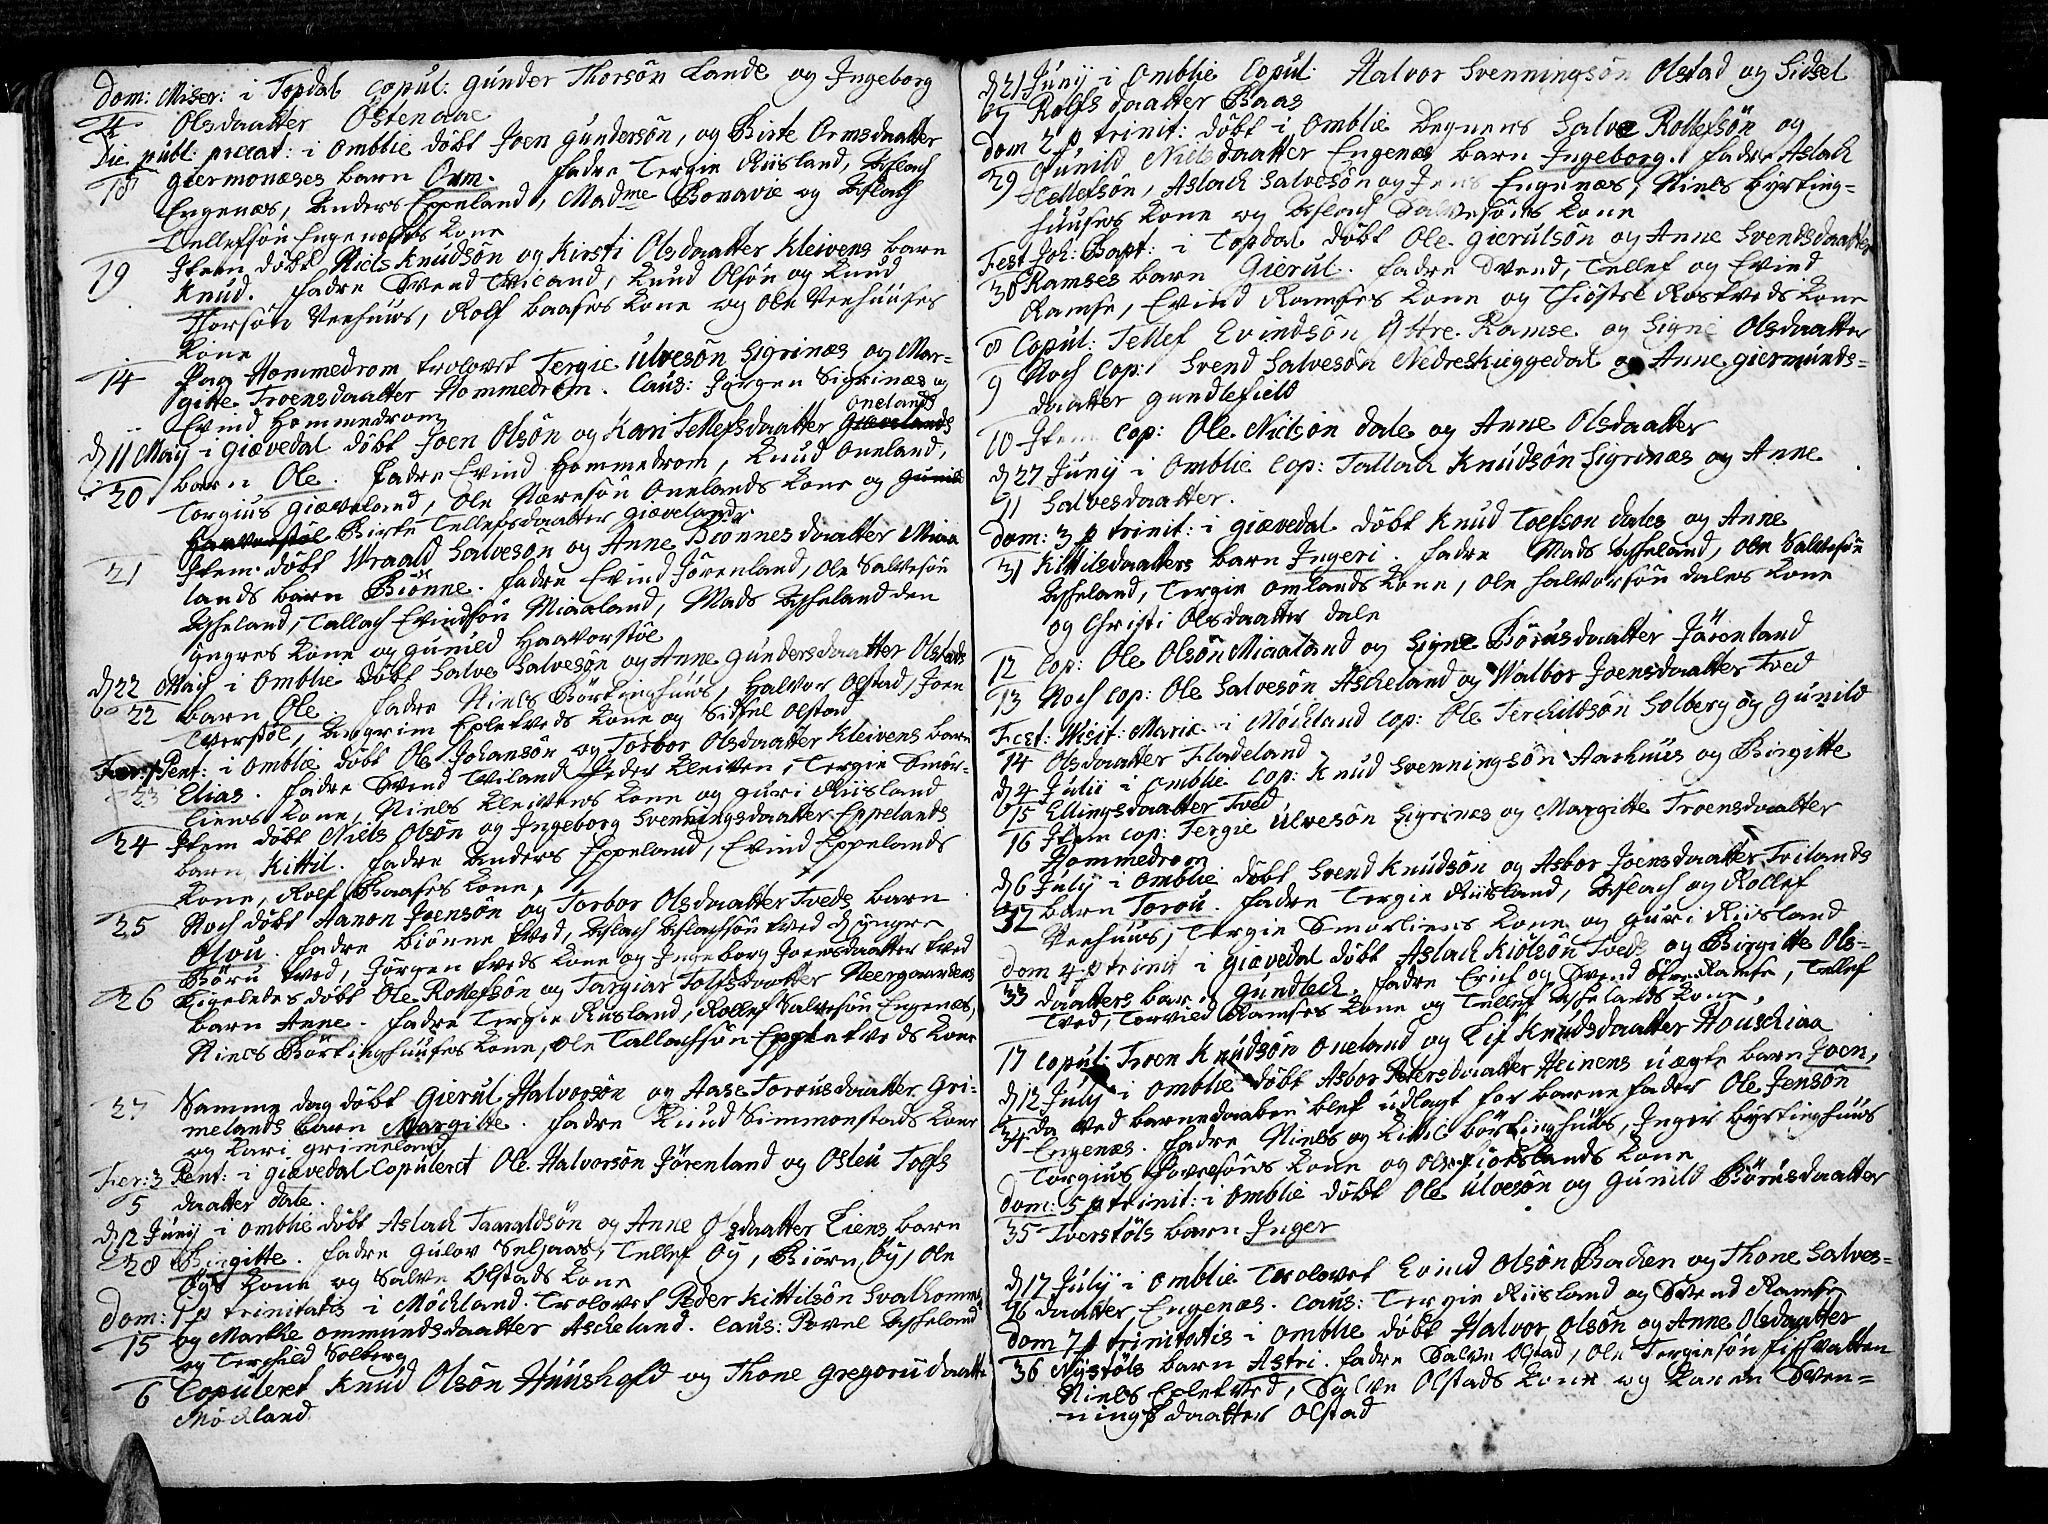 Dom: Miser: i Topdal Copul: Gunder Thorsøn Lande og Ingeborg
4 Olsdaatter Østendal
Die publ: precat: i Omblie døbt Joen Gundersøn, og Birte Ormsdaatter
18 Giermonæses barn Orm. Fadre Tergie Riisland, Aslach
Engenæs, Anders Eppeland, Madme Bonavie og Aslach
Tellefsøn Engenæses Kone
19 Item døbt Niels Knudsøn og Kirsti Olsdaatter Kleivens barn
Knud. Fadre Svend Tviland, Knud Olsøn og Knud
Thorsøn Veehuus, Rolf Baases Kone og Ole Veehuuses
Kone
14 Paa Hommedrom trolovet Tergie Ulvesøn Sigrinæs og Mar-
gitte Troensdaatter Hommedrom. Caus: Jørgen Sigrinæs og
Evind Hommedrom
Onelands
d 11 Maij i Giævedal døbt Joen Olsøn og Kari Tellefsdaatter Giævelands
20 barn Ole. Fadre Evind Hommedrom, Knud Oneland,
Torgius Giæveland, Ole Næresøn Onelands Kone og Gunild
Haavorstøl Birte Tellefsdaatter Giævelands
21 Item døbt Wraald Salvesøn og Anne Biønnesdaatter Miaa
lands barn Biønne. Fadre Evind Jørenland, Ole Salvesøn
Askeland, Tallach Evindsøn Miaaland, Mads Askeland den
yngres Kone og Gunild Haavorstøl
d 22 Maij i Omblie døbt Salve Salvesøn og Anne Gundersdaatter Olstads
22 barn Ole. Fadre Niels Børtinghuus, Halvor Olstad, Joen
Tverstøl, Angrim Epletveds Kone og Sidsel Olstad
Fer: 1 Pent: i Omblie døbt Ole Johansøn og Torbor Olsdaatter Kleivens barn
23 Elias. Fadre Svend Tviland Peder Kleiven, Tergie Smør-
liens Kone, Niels Kleivens Kone og Guri Riisland
24 Item døbt Niels Olsøn og Ingeborg Svenningsdaatter Eppelands
barn Kittil. Fadre Anders Eppeland, Evind Eppelands
Kone, Rolf Baases Kone,
25 Noch døbt Aanon Joensøn og Torbor Olsdaatter Tveds barn
Olou. Fadre Biønne Tved, Aslach Aslachsøn Tved d yngre
Børu Tved, Jørgen Tveds Kone og Ingeborg Joensdaatter Tved
26 Ligeledes døbt Ole Rollefsøn og Targiær Tolfsdaatter Neergaardens
barn Anne. Fadre Tergie Riisland, Rollef Salvesøn Engenæs,
Niels Børtinghuuses Kone, Ole Tallachsøn Epletveds Kone
27 Samme dag døbt Gierul Halvorsøn og Aase Torousdaatter Gri-
melands barn Margitte. Fadre Knud Simmonstads Kone
og Kari Grimeland
Fer: 3 Pent: i Giævedal Copuleret Ole Halvorsøn Jørenland og Osleu Tolfs
5 daatter Dale.
d 2 Junij i Omblie døbt Aslach Taaraldsøn og Anne Olsdaatter Liens barn
28 Birgitte. Fadre Gulov Seljaas, Tellef Øy, Biørn Øy, Ole
Øys Kone og Salve Olstads Kone
Dom: 1 p trinitatis i Møckland. Trolovet Peder Kittilsøn Svalhomme
15 og Marthe Ommundsdaatter Askeland. Caus: Povel Askeland
og Terchild Solberg
6 Copuleret Knud Olsøn Huushold og Thone Gregorii daatter
Møckland
d 21 Junij i Omblie Copul: Halvor Svenningsøn Olstad og Sidsel
7 Rolfsdaatter Baas
Dom 2 p trinit: døbt i Omblie Degnens Salve Rollefsøn og
29 Gunild Nielsdaatter Engenæs barn Ingeborg. Fadre Aslach
Tellefsøn, Aslach Salvesøn og Jens Engenæs, Niels Byrting-
huuses Kone og Aslach Salvesøns Kone
Fest Joh: Bapt: i Topdal døbt Ole Gierulsøn og Anne Svendsdaatter
30 Ramses barn Gierul. Fadre Svend, Tellef og Evind
Ramse, Evind Ramses Kone og Thiøstel Rostveds Kone
8 Copul: Tellef Evindsøn Yttre Ramse og Signe Olsdaatter
9 Noch Cop: Svend Salvesøn Nedreskuggedal og Anne Giermunds-
daatter Gundlefield
10 Item Cop: Ole Nielsøn Dale og Anne Olsdaatter
d 27 Junij i Omblie Cop: Tallach Knudsøn Sigrinæs og Anne
11 Salvesdaatter.
Dom: 3 p trinit: i Giævedal døbt Knud Toefson Dales og Anne
31 Kittilsdaatters barn Ingeri. Fadre Mads Askeland, Ole Salvesøn
Askeland, Tergie Omlands Kone, Ole Halvorsøn Dales Kone
og Christi Olsdaatter Dale
12 Cop: Ole Olsøn Miaaland og Signe Børusdaatter Jørenland
13 Noch Cop: Ole Salvesøn Askeland og Walbor Joensdaatter Tved
Fest: Visit: Mariæ i Møckland Cop: Ole Terchildsøn Solberg og Gunild
14 Olsdaatter Fladeland
d 4 Julii i Omblie Cop: Knud Svenningsøn Aashuus og Birgitte
15 Ellingsdaatter Tved
16 Item Cop: Tergie Ulvesøn Sigrinæs og Margitte Troensdaatter
Hommedrom
d 6 Julij i Omblie døbt Svend Knudsøn og Asbor Joensdaatter Tvilands
32 barn Torou. Fadre Tergie Riisland, Aslach og Rollef
Veehuus, Tergie Smørliens Kone og Guri Riisland
Dom 4 p trinit i Giævedal døbt Aslach Kiølsøn Tveds og Birgitte Ols-
33 daatters barn Gundlech. Fadre Erich og Svend Øvre Ramse, Tellef
Tved, Torvild Ramses Kone og Tellef Askelands Kone,
17 Copul: Troen Knudsøn Oneland og Lif Knudsdaatter Houschiaa
d 12 Julij i Omblie døbt Asbor Petersdaatter Heinens uægte barn Joen,
34 da ved barnedaaben blef udlagt for barnefader Ole Jensøn
Engenæs. Fadre Niels og Kittil Børtinghuus, Inger Byrtinghuus
Torgius Povelsøns Kone og Ole Fiøreslands Kone
Dom: 5 p trinit: i Omblie døbt Ole Ulvesøn og Gunild Børusdaatter
35 Tverstøls barn Inger
d 17 Julij i Omblie Trolovet Evind Olsøn Bachen og Thone Salves-
16 daatter Engenæs. Caus: Tergie Riisland og Svend Ramse
Dom 7 p trinitatis i Omblie døbt Halvor Olsøn og Anne Olsdaatter
36 Nystøls barn Astri. Fadre Salve Olstad, Ole Tergiesøn Fischvatten
Niels Epletved, Salve Olstads Kone og Karen Sven-
ningsdaatter Olstad